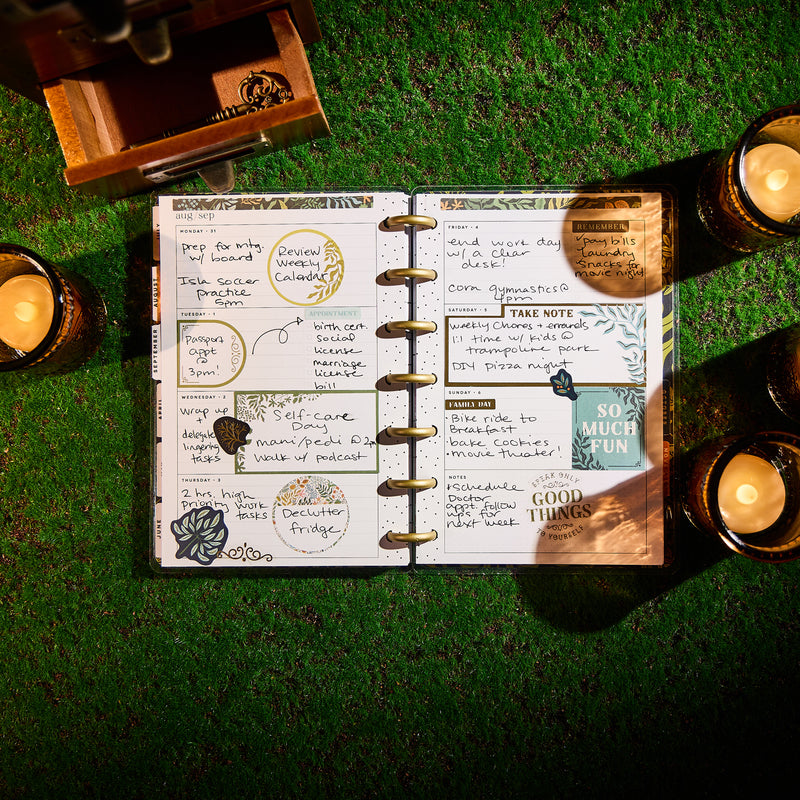 aug/sep
MONDAY • 31
prep for mtg.
w/ board
Isla soccer
practice
5pm
Review
Weekly
Calendar
TUESDAY • 1
Passport
appt @
3pm!
APPOINTMENT
birth cert.
social
license
marriage
license
bill
WEDNESDAY • 2
wrap up
+
delegate
lingering
tasks
Self-care
Day
mani/pedi @ 2p
Walk w/ podcast
THURSDAY • 3
2 hrs. high
Priority work
tasks
Declutter
fridge
FRIDAY • 4
end work day
w/ a clear
desk!
cora gymnastics @
4pm
REMEMBER
pay bills
Laundry
Snacks for
movie night
SATURDAY • 5
TAKE NOTE
weekly Chores + errands
1:1 time w/ kids @
trampoline park
DIY pizza night
SUNDAY • 6
FAMILY DAY
• Bike ride to
Breakfast
• bake cookies
• movie theater!
SO
MUCH
FUN
NOTES
*Schedule
Doctor
appt. follow
ups for
next week
SPEAK ONLY
GOOD
THINGS
TO YOURSELF
AUGUST
SEPTEMBER
APRIL
JUNE